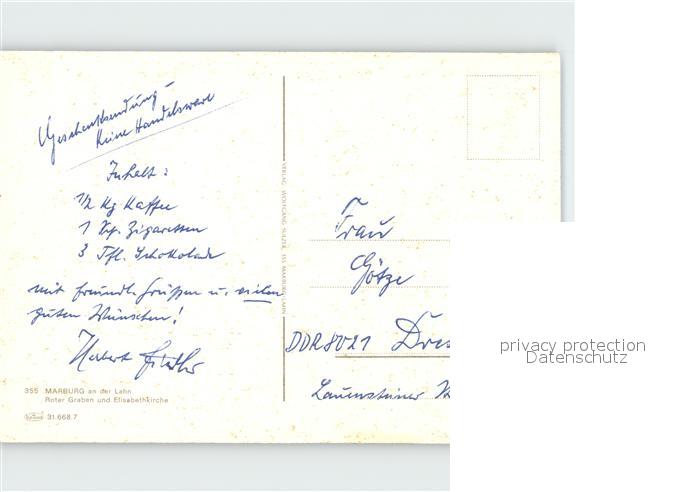 Geschenksendung -
Keine Handelsware
Inhalt:
1/2 Kg Kaffee
1 Sch. Zigaretten
3 Tfl. Schokolade
mit freundl. Grüßen u. vielen
guten Wünschen!
Herbert Fiedler
355 MARBURG an der Lahn
Roter Graben und Elisabethkirche
31.668.7
VERLAG WOLFGANG SULZER 355 MARBURG/LAHN
Frau
Götze
DDR 8021 Dres
Lauensteiner
privacy protection
Datenschutz